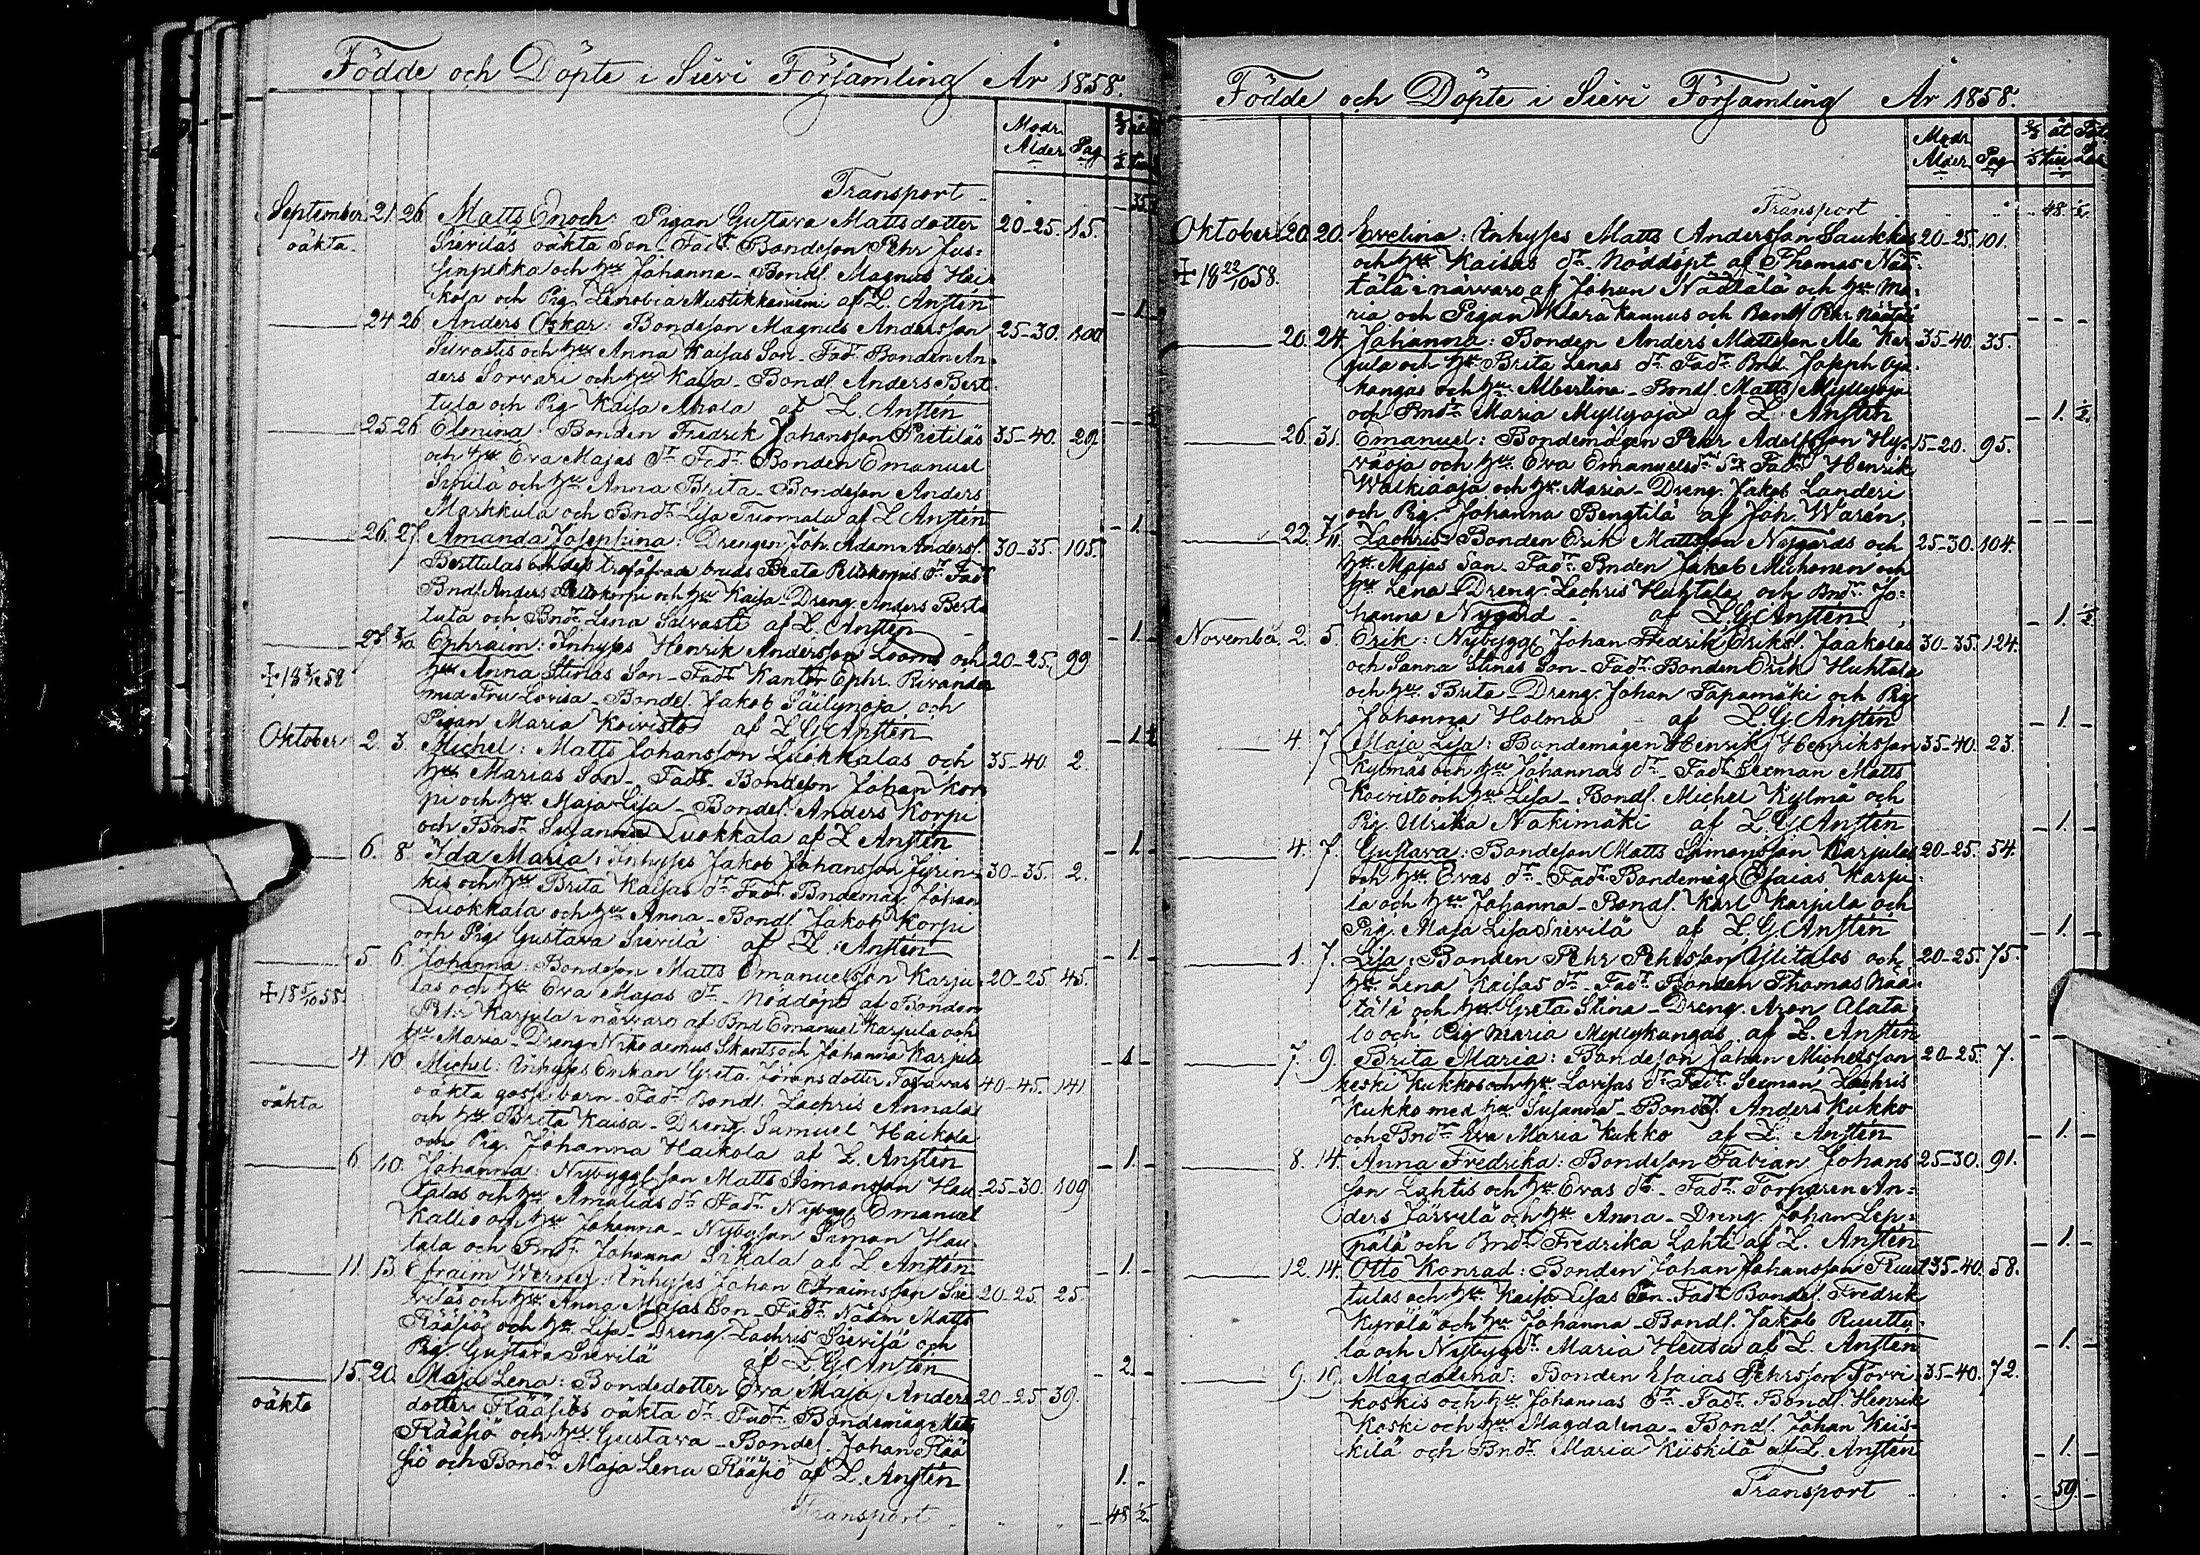 Födde och Döpte i Sievi Församling År 1858.
Modr. Ålder Pag
Transport
September 21. 26. Matts Enoch: Pigan Gustava Mattsdotter 20-25. 15.
oäkta Sieviläs oäkta Son. Fadr. Bondeson Pehr Jus-
sinpekka och Hu Johanna - Bonds. Magnus Hai-
kola och Pig. Lenobia Mustikkaniemi af L. Anstén
24. 26. Anders Oskar: Bondeson Magnus Andersson 25-30. 100
Sivastis och Hu Anna Kaisas Son. Fadr. Bonden An-
ders Sorvari och Hu Kaisa - Bonds. Anders Bert-
tula och Pig Kaisa Ahola af L. Anstén
25. 26. Elenina: Bonden Fredrik Johansson Pietiläs 35-40. 29.
och Hu Eva Majas dr. Fadr. Bonden Emanuel
Sipilä och Hu Anna Brita - Bondeson Anders
Markkula och Bndr. Lisa Tuomala af L Anstén 1.
26. 27. Amanda Josephina: Drengen Joh. Adam Anderss. 30-35. 105.
Berttulas och dess trolofvade bruds Beata Peltokorpis dr. Fadr
Bnd Anders Peltokorpi och Hu Kaisa - Dreng. Anders Bert-
tula och Bndr. Lena Sivasti af L. Anstén 1.
27. 3/10. Ephraim: Inhyses Henrik Andersson Looms och 20-25. 99
Hu Anna Stinas Son - Fadr. Kantor Ephr. Rivander
med Fru Lovisa - Bondes. Jakob Säilynoja och
Pigan Maria Koivisto af L G Anstén 1.
Oktober 2. 3. Michel: Matts Johansson Luokkalas och 35-40. 2.
Hu Marias Son - Fadr. Bondeson Johan Kor-
pi och Hu Maja Lisa - Bondes. Anders Korpi
och Bndr. Susanna Luokkala af L Anstén 1.
6. 8. Ida Maria: Inhyses Jakob Johansson Jyrin- 30-35. 2.
kis och Hu Brita Kaisas dr. Fadr. Bndemåg. Johan
Luokkala och Hu Anna - Bonds. Jakob Korpi
och Pig Gustava Sievilä af L. Anstén 1.
5. 6. Johanna: Bondeson Matts Emanuelsson Karju- 20-25. 45.
las och Hu Eva Majas dr. - Nöddöpt af Bonden
Pehr Karjula i närvaro af Bnd Emanuel Karjula och
Hu Maria - Dreng Nikodemus Skants och Johanna Karjula
4. 10. Michel: Inhyses Enkan Greta Jöransdotter Toppavas 40-45. 141
oäkta oäkta gosse barn - Fadr. Bond. Zachris Annalas
och Hu Brita Kaisa - Dreng. Samuel Haikola
och Pig. Johanna Haikola af L. Anstén 1.
6. 10. Johanna: Nybyggs. son Matts Simonsson Hau- 25-30. 109
talas och Hu Amalias dr. Fadr. Nybygg Emanuel
Kallio och Hu Johanna - Nybysson Simon Hau-
tala och Bndr. Johanna Sikala af L Anstén 1.
11. 13. Efraim Werner: Inhyses Johan Efraimsson Sie- 20-25. 25.
viläs och Hu Anna Majas Son - Fadr. Nådm Matts
Rääsiö och Hu Lisa - Dreng. Zachris Sievilä och
Pig Gustava Sievilä af L G Anstén 2.
15. 20. Maja Lena: Bondedotter Eva Maja Anders- 20-25. 39.
oäkta dotter Rääsiös oäkta dr. Fadr. Bondemåg Matts
Rääsiö och Hu Gustava - Bondes. Johan Rää-
siö och Bondr. Maja Lena Rääsiö af L. Anstén 1.
Transport 48 1/2.
Födde och Döpte i Sievi Församling År 1858.
Modr. Ålder Pag
Transport 48. 1/2.
Oktober 20. 20. Evelina: Inhyses Matts Andersson Saukkos 20-25. 101.
+ 18 22/10 58. och Hu Kaisas dr. Nöddöpt af Thomas Nää-
tälä i närvaro af Johan Näätälä och Hu Ma-
ria och Pigan Klara Kannus och Bonds Pehr Näätälä
20. 24. Johanna: Bonden Anders Mattsson Ala Kar- 35-40. 35.
jula och Hu Brita Lenas dr. Fadr. Bnd. Joseph Oja-
kangas och Hu Albertina - Bonds. Matts Myllyoja
och Bndr. Maria Myllyoja af L. Anstén 1. 1/2.
26. 31. Emanuel: Bondemågen Pehr Adolfsson Hy- 15-20. 95.
väoja och Hu Eva Emanuelsdr. Son Fadr. Henrik
Walkiaoja och Hu Maria - Dreng. Jakob Landeri
och Pig. Johanna Bengtilä af Joh. Warén.
22. 7/11. Zachris: Bonden Erik Mattsson Nygårds och 25-30. 104.
Hu Majas Son - Fadr. Bnden Jakob Muhonen och
Hu Lena - Dreng Zachris Huhtala och Bndr. Jo-
hanna Nygård af L G Anstén 1. 1/2
November 2. 5. Erik: Nybygg Johan Fredrik Eriks. Jaakolas 30-35. 124.
och Sanna Stinas Son - Fadr. Bonden Erik Huhtala
och Hu Brita - Dreng. Johan Tapamäki och Pig
Johanna Holma af L. G Anstén 1.
4. 7. Maja Lisa: Bondemågen Henrik Henriksson 35-40. 23.
Kylmäs och Hu Johannas dr. Fadr. Sexman Matts
Koivisto och Hu Lisa - Bonds. Michel Kylmä och
Pig. Ulrika Nakimäki af L G Anstén 1.
4. 7. Gustava: Bondeson Matts Simonsson Karjulas 20-25. 54.
och Hu Evas dr. - Fadr. Bondemåg Esaias Karju-
la och Hu Johanna - Bonds. Karl Karjula och
Pig. Maja Lisa Sievilä af L. G Anstén 1.
1. 7. Lisa: Bonden Pehr Pehrsson Ylitalos och 20-25. 75.
Hu Lena Kaisas dr - Fadr. Bonden Thomas Nää-
tälä och Hu Greta Stina - Dreng. Aron Alata-
lo och Pig Maria Myllykangas af L. Anstén
7. 9. Brita Maria: Bondeson Johan Michelsson 20-25. 7.
Keski Kukkos och Hu Lovisas dr. Fadr. Sexman Zachris
Kukko med Hu Susanna - Bonds. Anders Kukko
och Bndr. Eva Maria Kukko af L. Anstén 1.
8. 14. Anna Fredrika: Bondeson Fabian Johans- 25-30. 91.
son Lahtis och Hu Evas dr. - Fadr. Torparen An-
ders Järvelä och Hu Anna - Dreng. Johan Lep-
pälä och Bndr. Fredrika Lahti af L. Anstén 1.
12. 14. Otto Konrad: Bonden Johan Johansson Ruut- 35-40. 58.
tulas och Hu Kaisa Lisas Son - Fadr. Bonds. Fredrik
Kyrölä och Hu Johanna - Bonds. Jakob Ruuttu-
la och Nybyggdr. Maria Heusa af L. Anstén 1.
9. 19. Magdalena: Bonden Esaias Pehrsson Torvi- 35-40. 72.
koskis och Hu Johannas dr. - Fadr. Bonds. Henrik
Koski och Hu Magdalena - Bonds. Johan Kiis-
kilä och Bndr. Maria Kiiskilä af L. Anstén 1.
Transport 59.